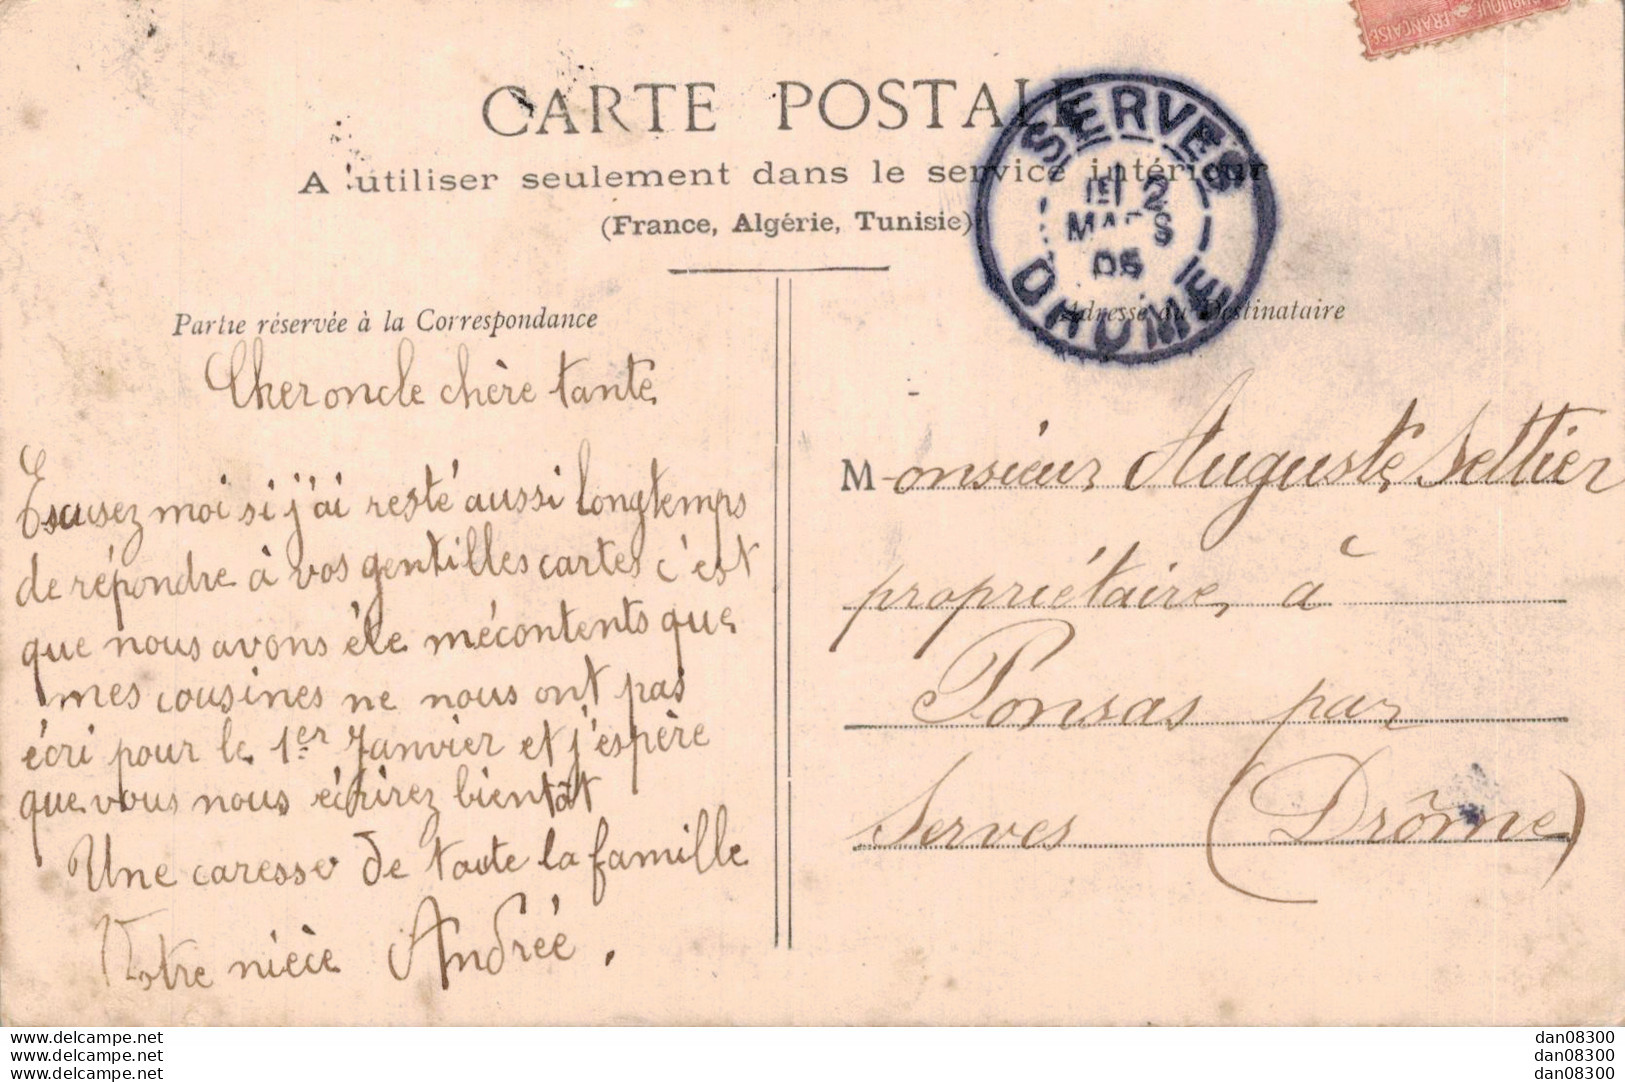 RÉPUBLIQUE FRANÇAISE
CARTE POSTALE
A utiliser seulement dans le service intérieur
(France, Algérie, Tunisie)
SERVES
1E 2
MARS
05
DROME
Partie réservée à la Correspondance
Cher oncle chère tante
Escusez moi si j'ai resté aussi longtemps
de répondre à vos gentilles cartes c'est
que nous avons éte mécontents que
mes cousines ne nous ont pas
écri pour le 1er Janvier et j'espère
que vous nous écrirez bientôt
Une caresse de toute la famille
Votre nièce Andrée.
Adresse du Destinataire
Monsieur Auguste Settier
propriétaire, à
Ponsas par
Serves (Drôme)
www.delcampe.net
www.delcampe.net
www.delcampe.net
dan08300
dan08300
dan08300